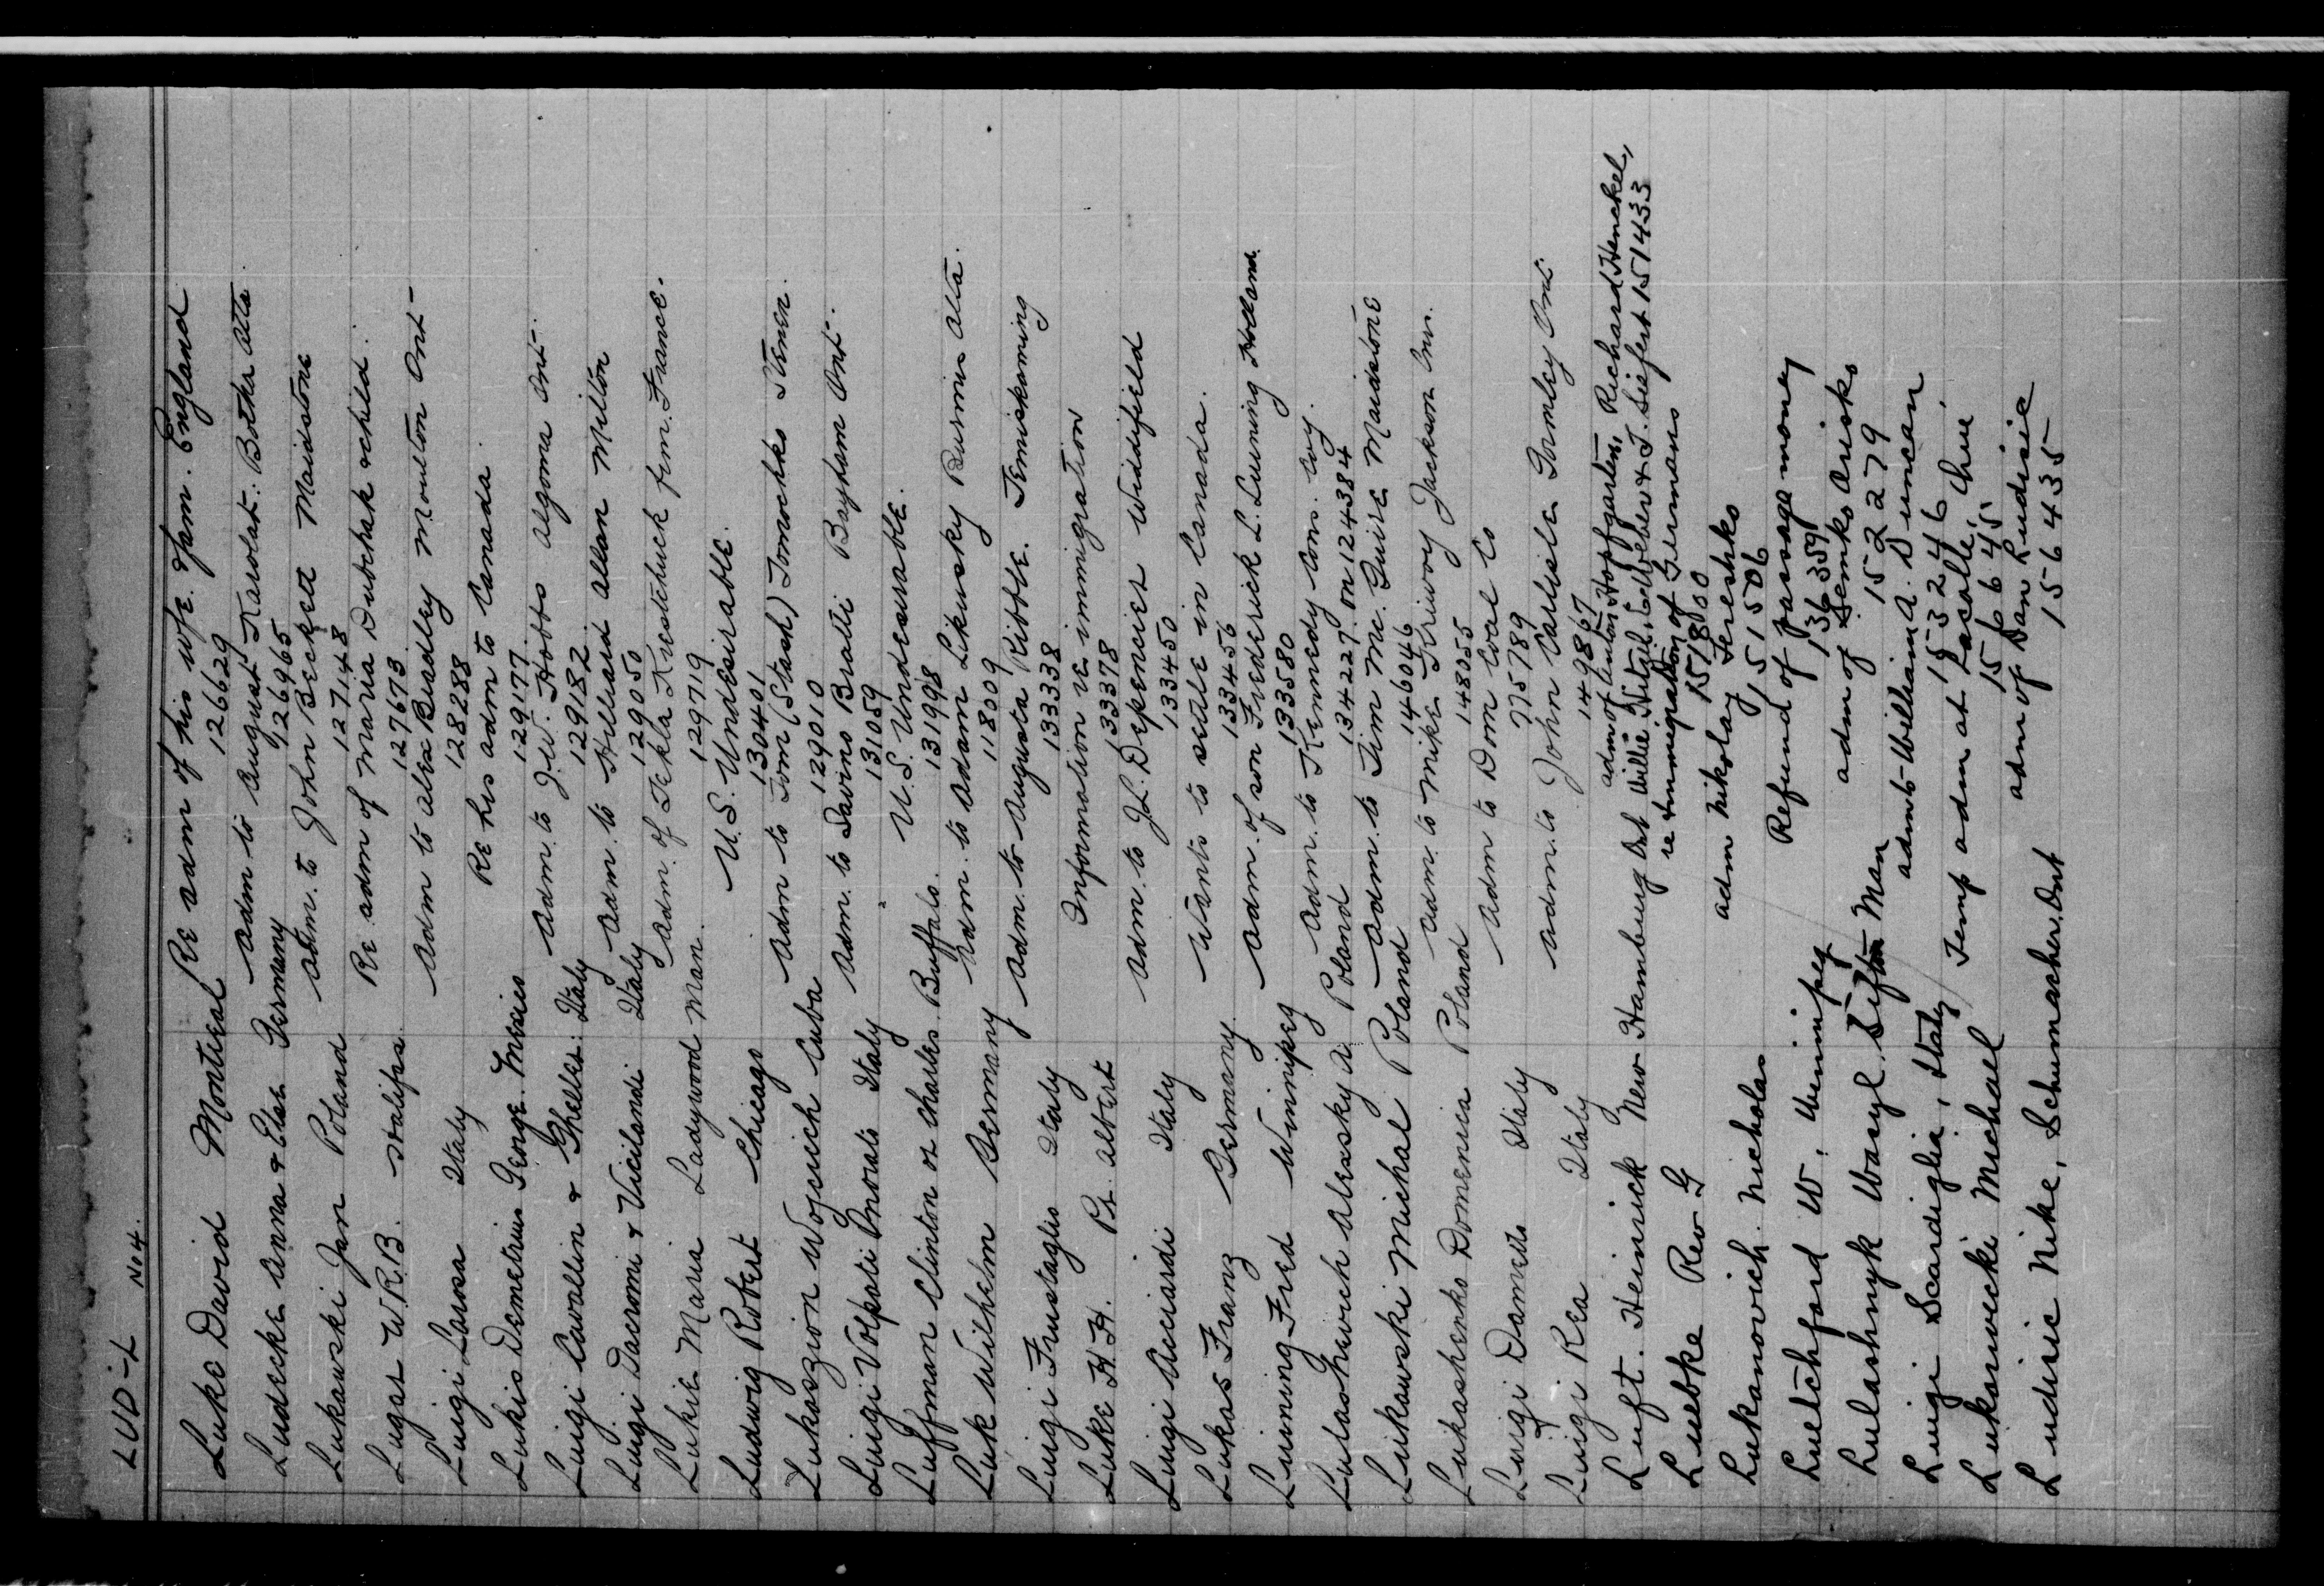 LUD-L No 4.
Luke David Montreal Re adm of his wife & fam. England
126629
Ludecke Anna & Else Germany Adm to August Karolat. Botha Alta.
126965
Lukawski Jan Poland Adm. to John Beckett Maidstone
127148
Lugar W.R.B. Halifax Re adm of Maria Dutchak & child.
127673
Luigi Larosa Italy Adm to Alex Bradley Moulton Ont-
128288
Lukis Demetrius George. Mexico Re his adm to Canada.
129177
Luigi Cavallin & Ghellel: Italy Adm. to J.W. Hobbs Algoma Ont-
129182
Luigi Dacromi & Vicilandi Italy Adm. to Hilliard Allan Milton
129050
Lukie Maria Ladywood Man. Adm. of Tekla Kuestchuck frm. France.
129719
Ludwig Robert Chicago U.S. Undesirable.
130401
Lukaszion Wojciech Cuba Adm to Tom (Stash) Tomochko Stenen.
129010
Luigi Volpati Onorato Italy Adm. to Savino Bralli Bayham Ont.
131059
Luffman Clinton or Charles. Buffalo. U.S. Undesirable.
131998
Luk Wilhelm Germany Adm. to Adam Likusky Burmis Alta.
118009
Luigi Frustaglio Italy Adm. to Augusta Ribble. Temiskaming
133338
Luke H.H. Pr. Albert Information re immigration
133378
Luigi Acciardi Italy Adm. to J.L. Depencier Widdifield
133450
Lukas Franz Germany. Wants to settle in Canada.
133456
Luining Fred Winnipeg Adm. of son Frederick L. Luining Holland.
133580
Lulashevich Alessky A. Poland Adm. to Kennedy Con. Coy.
134227. on 1243884
Lukawski Michal Poland Adm. to Jim Mc. Guire Maidstone
146046
Lukashenko Domenica Poland Adm. to Mike Kriwoy Jackson Cnr.
148055
Luigi Damello Italy Adm to Dom Coal Co
775789
Luigi Rea Italy Adm. to John Carlisle Gormley Ont.
149867
Luft. Heinrich New Hamburg Ont adm of Anton Hopfgarten, Richard Henckel,
Willie Hetzel, C. Weber & J. Siefert 151433
Luebke Rev G re immigration of Germans
151800
Lukanovich. Nicholas adm Nikolay Tereshko
151506
Luetchford W. Winnipeg Refund of passage money
136359
Lulashnyk Wasyl. Sifton Man adm of Semko Orisko
152279
Luigi Scardiglia, Italy adm to William A. Duncan
153246
Lukasiwecki Michael Temp adm at Lacolle, Que,
156645
Ludisic Mike, Schumacher, Ont adm of Dan Ludisic
156435